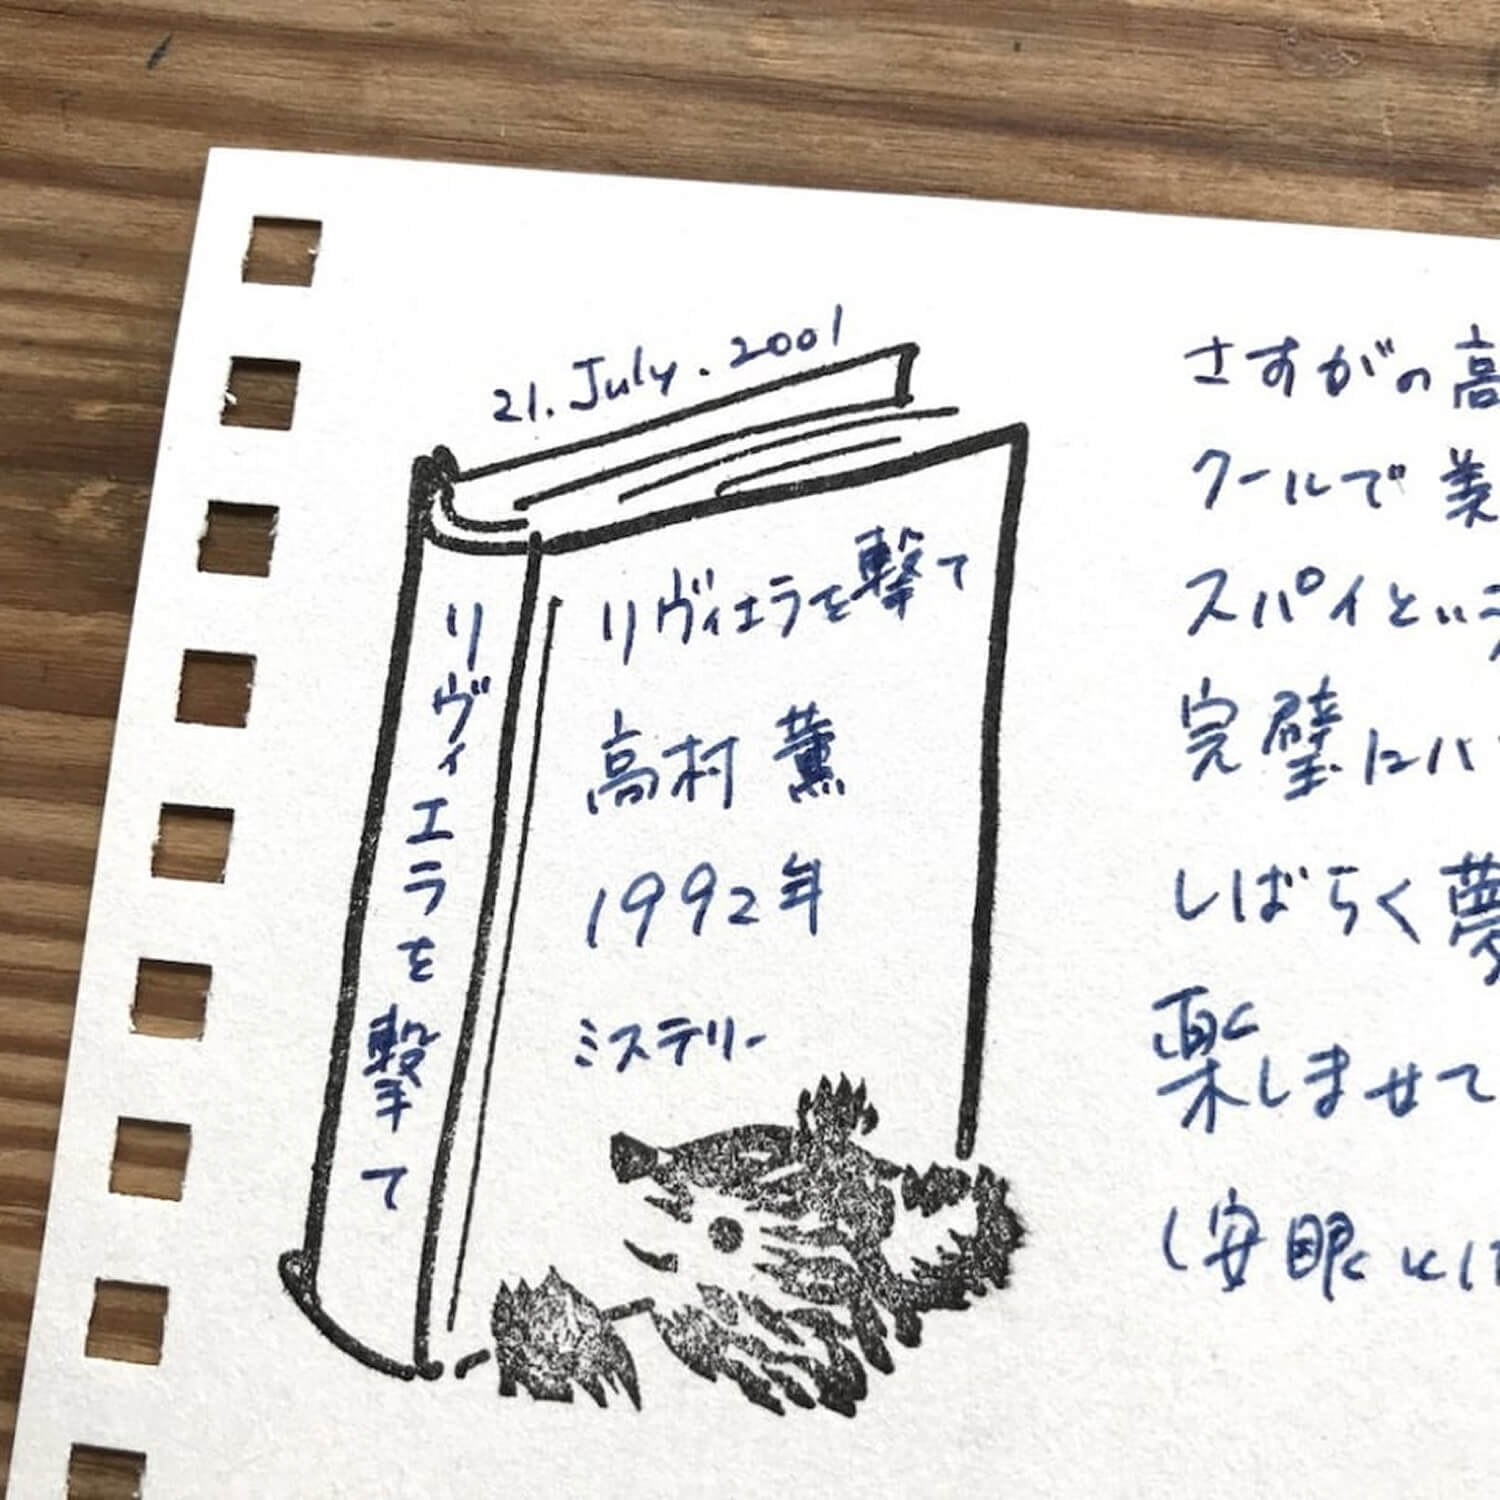 21. July. 2001
リヴィエラを撃て
リヴィエラを撃て
高村 薫
1992年
ミステリー
さすがの高
クールで美
スパイとい
完璧にハ
しばらく夢
楽しませて
(安眠